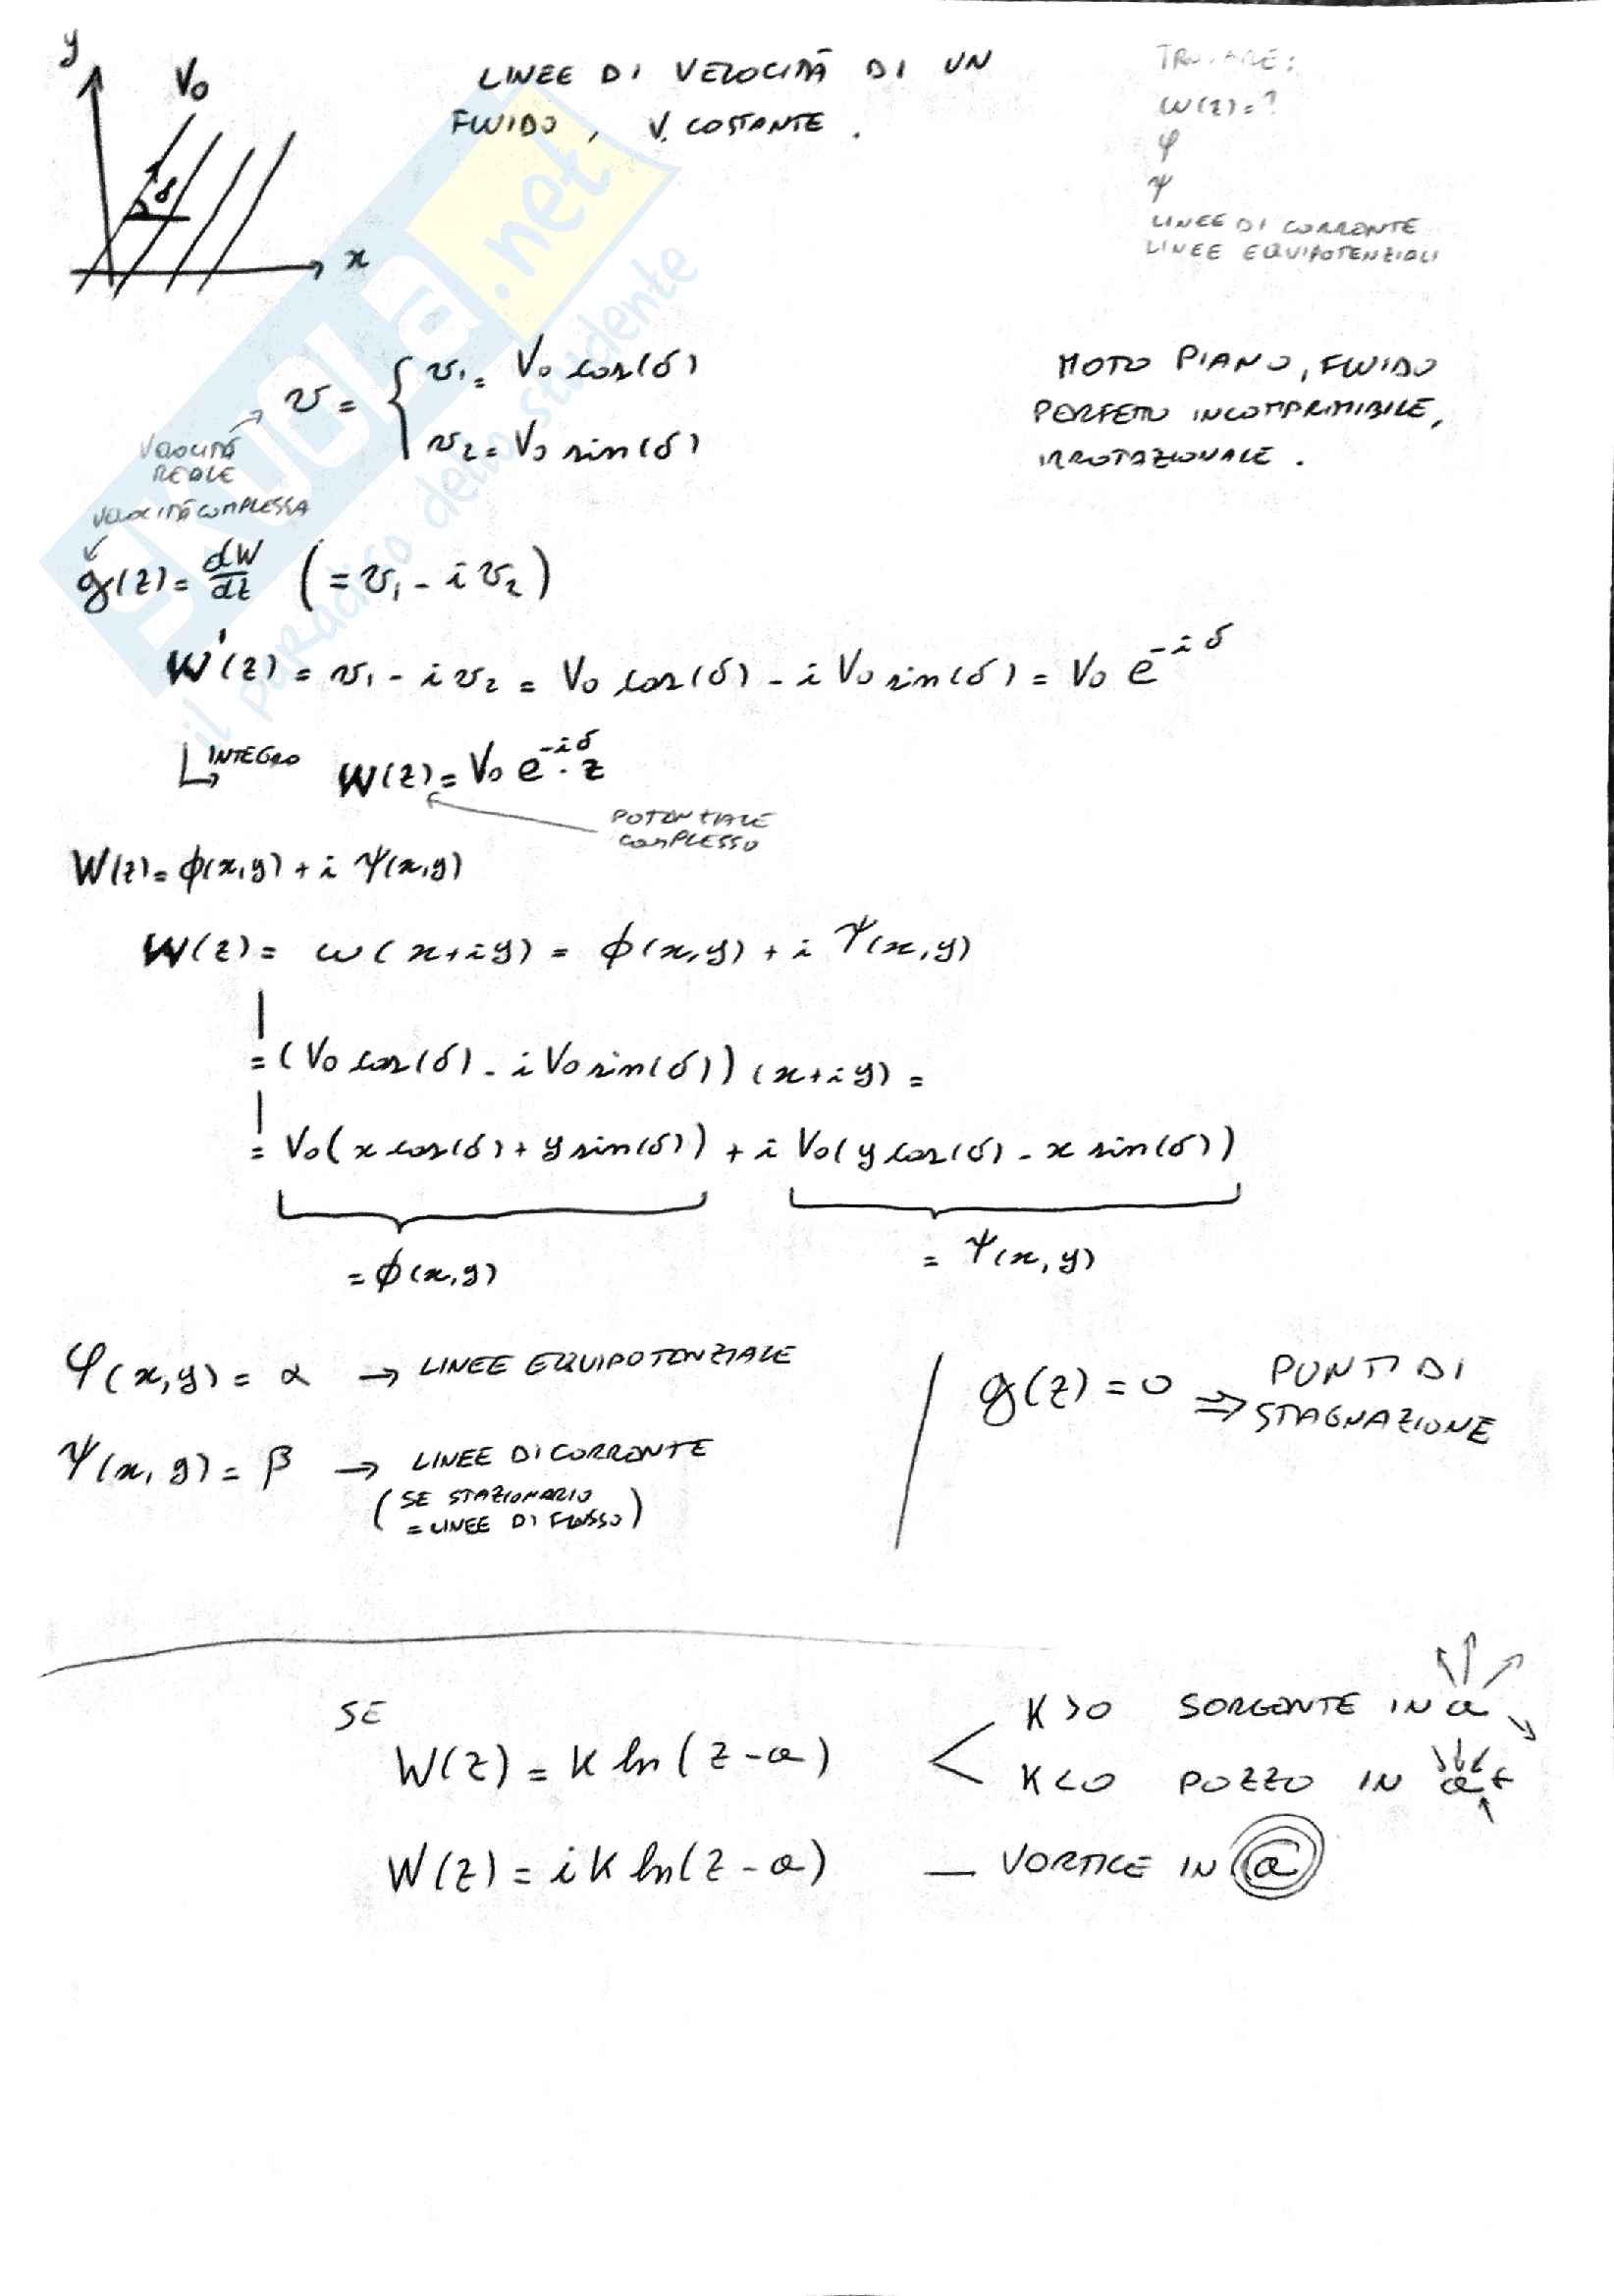 y
V₀
LINEE DI VELOCITÀ DI UN
FLUIDO, V. COSTANTE.
TROVARE:
W(z)=?
φ
ψ
LINEE DI CORRENTE
LINEE EQUIPOTENZIALI
δ
x
v = { v₁ = V₀ cos(δ)
v₂ = V₀ sin(δ)
VELOCITÀ
REALE
MOTO PIANO, FLUIDO
PERFETTO INCOMPRIMIBILE,
IRROTAZIONALE.
VELOCITÀ COMPLESSA
g(z) = dW/dz (= v₁ - i v₂)
W'(z) = v₁ - i v₂ = V₀ cos(δ) - i V₀ sin(δ) = V₀ e^(-iδ)
INTEGRO W(z) = V₀ e^(-iδ) · z
POTENZIALE
COMPLESSO
W(z) = ϕ(x,y) + i ψ(x,y)
W(z) = w(x+iy) = ϕ(x,y) + i ψ(x,y)
= (V₀ cos(δ) - i V₀ sin(δ)) (x+iy) =
= V₀(x cos(δ) + y sin(δ)) + i V₀(y cos(δ) - x sin(δ))
= ϕ(x,y) = ψ(x,y)
φ(x,y) = α → LINEE EQUIPOTENZIALE
ψ(x,y) = β → LINEE DI CORRENTE
(SE STAZIONARIO
= LINEE DI FLUSSO)
g(z) = 0 ⇒ PUNTI DI
STAGNAZIONE
SE
W(z) = K ln(z-a) < K>0 SORGENTE IN a
K<0 POZZO IN a
W(z) = i K ln(z-a) — VORTICE IN a
SKUOLA.net
il paradiso dello studente